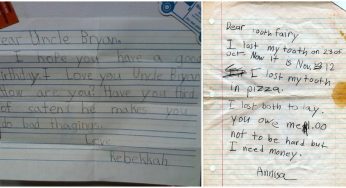 Dear Uncle Bryan,
I hope you have a good
birthday. I Love you Uncle Bryan
How are you? Have you hird
of saten? he makes you
do bad thagings.
Love
Rebekkah
Dear Tooth Fairy
I lost my tooth on 23 of
oct Now it is Nov 12
I lost my tooth
in pizza.
I lost both to day.
you owe me 1.00
not to be hard but
I need money.
Annisa